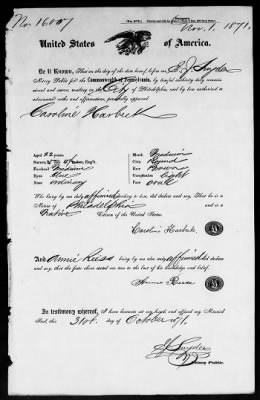 No. 16007
Nov. 1, 1871.
United States of America.
Be it Known, That on the day of the date hereof, before me E. J. Snyder
Notary Public for the Commonwealth of Pennsylvania, by lawful authority duly commissioned
and sworn, residing in the City of Philadelphia, and by law authorized to administer
oaths and affirmations, personally appeared
Caroline Harbeck
Aged 32 years
Stature
Forehead Medium
Eyes Blue
Nose ordinary
Mouth Medium
Chin Round
Hair Brown
Complexion Light
Face oval
Who being by me duly affirmed did declare and say, That he is a
Native of Philadelphia and a
Native Citizen of the United States.
Caroline Harbeck
And Annie Reiss being by me also duly affirmed did
declare and say, that the facts above stated are true to the best of his knowledge and belief.
Annie
In testimony whereof, I have hereunto set my hand, and affixed my Notarial
Seal, this 31st day of October 1871.
E J Snyder
Notary Public.